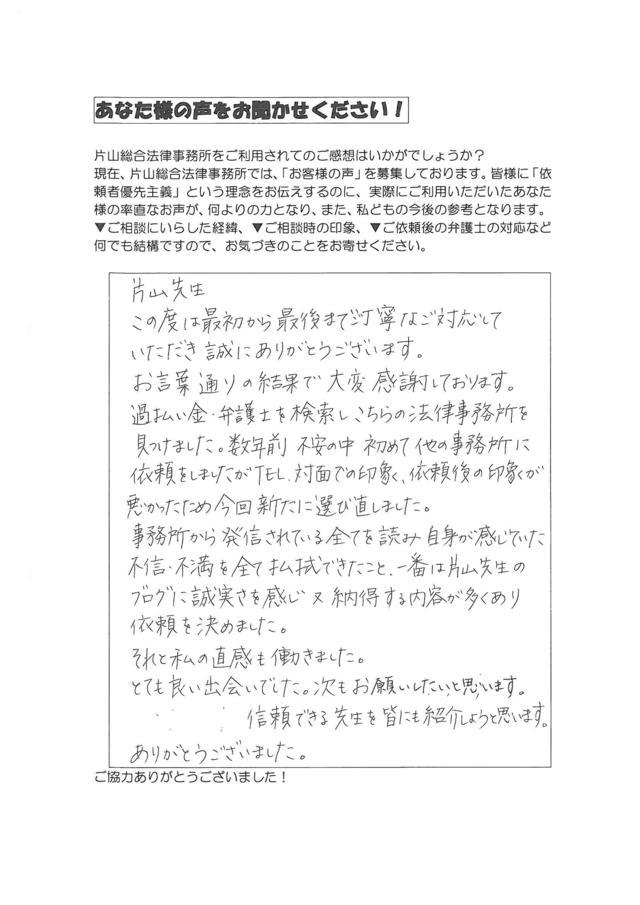 あなた様の声をお聞かせください！
片山総合法律事務所をご利用されてのご感想はいかがでしょうか？
現在、片山総合法律事務所では、「お客様の声」を募集しております。皆様に「依
頼者優先主義」という理念をお伝えするのに、実際にご利用いただいたあなた
様の率直なお声が、何よりの力となり、また、私どもの今後の参考となります。
▼ご相談にいらした経緯、▼ご相談時の印象、▼ご依頼後の弁護士の対応など
何でも結構ですので、お気づきのことをお寄せください。
片山先生
この度は最初から最後までご丁寧なご対応して
いただき誠にありがとうございます。
お言葉通りの結果で大変感謝しております。
過払い金・弁護士を検索しこちらの法律事務所を
見つけました。数年前 不安の中 初めて他の事務所に
依頼をしましたがTEL、対面での印象、依頼後の印象が
悪かったため今回新たに選び直しました。
事務所から発信されている全てを読み自身が感じていた
不信・不満を全て払拭できたこと、一番は片山先生の
ブログに誠実さを感じ又納得する内容が多くあり
依頼を決めました。
それと私の直感も働きました。
とても良い出会いでした。次もお願いしたいと思います。
信頼できる先生を皆にも紹介しようと思います。
ありがとうございました。
ご協力ありがとうございました！